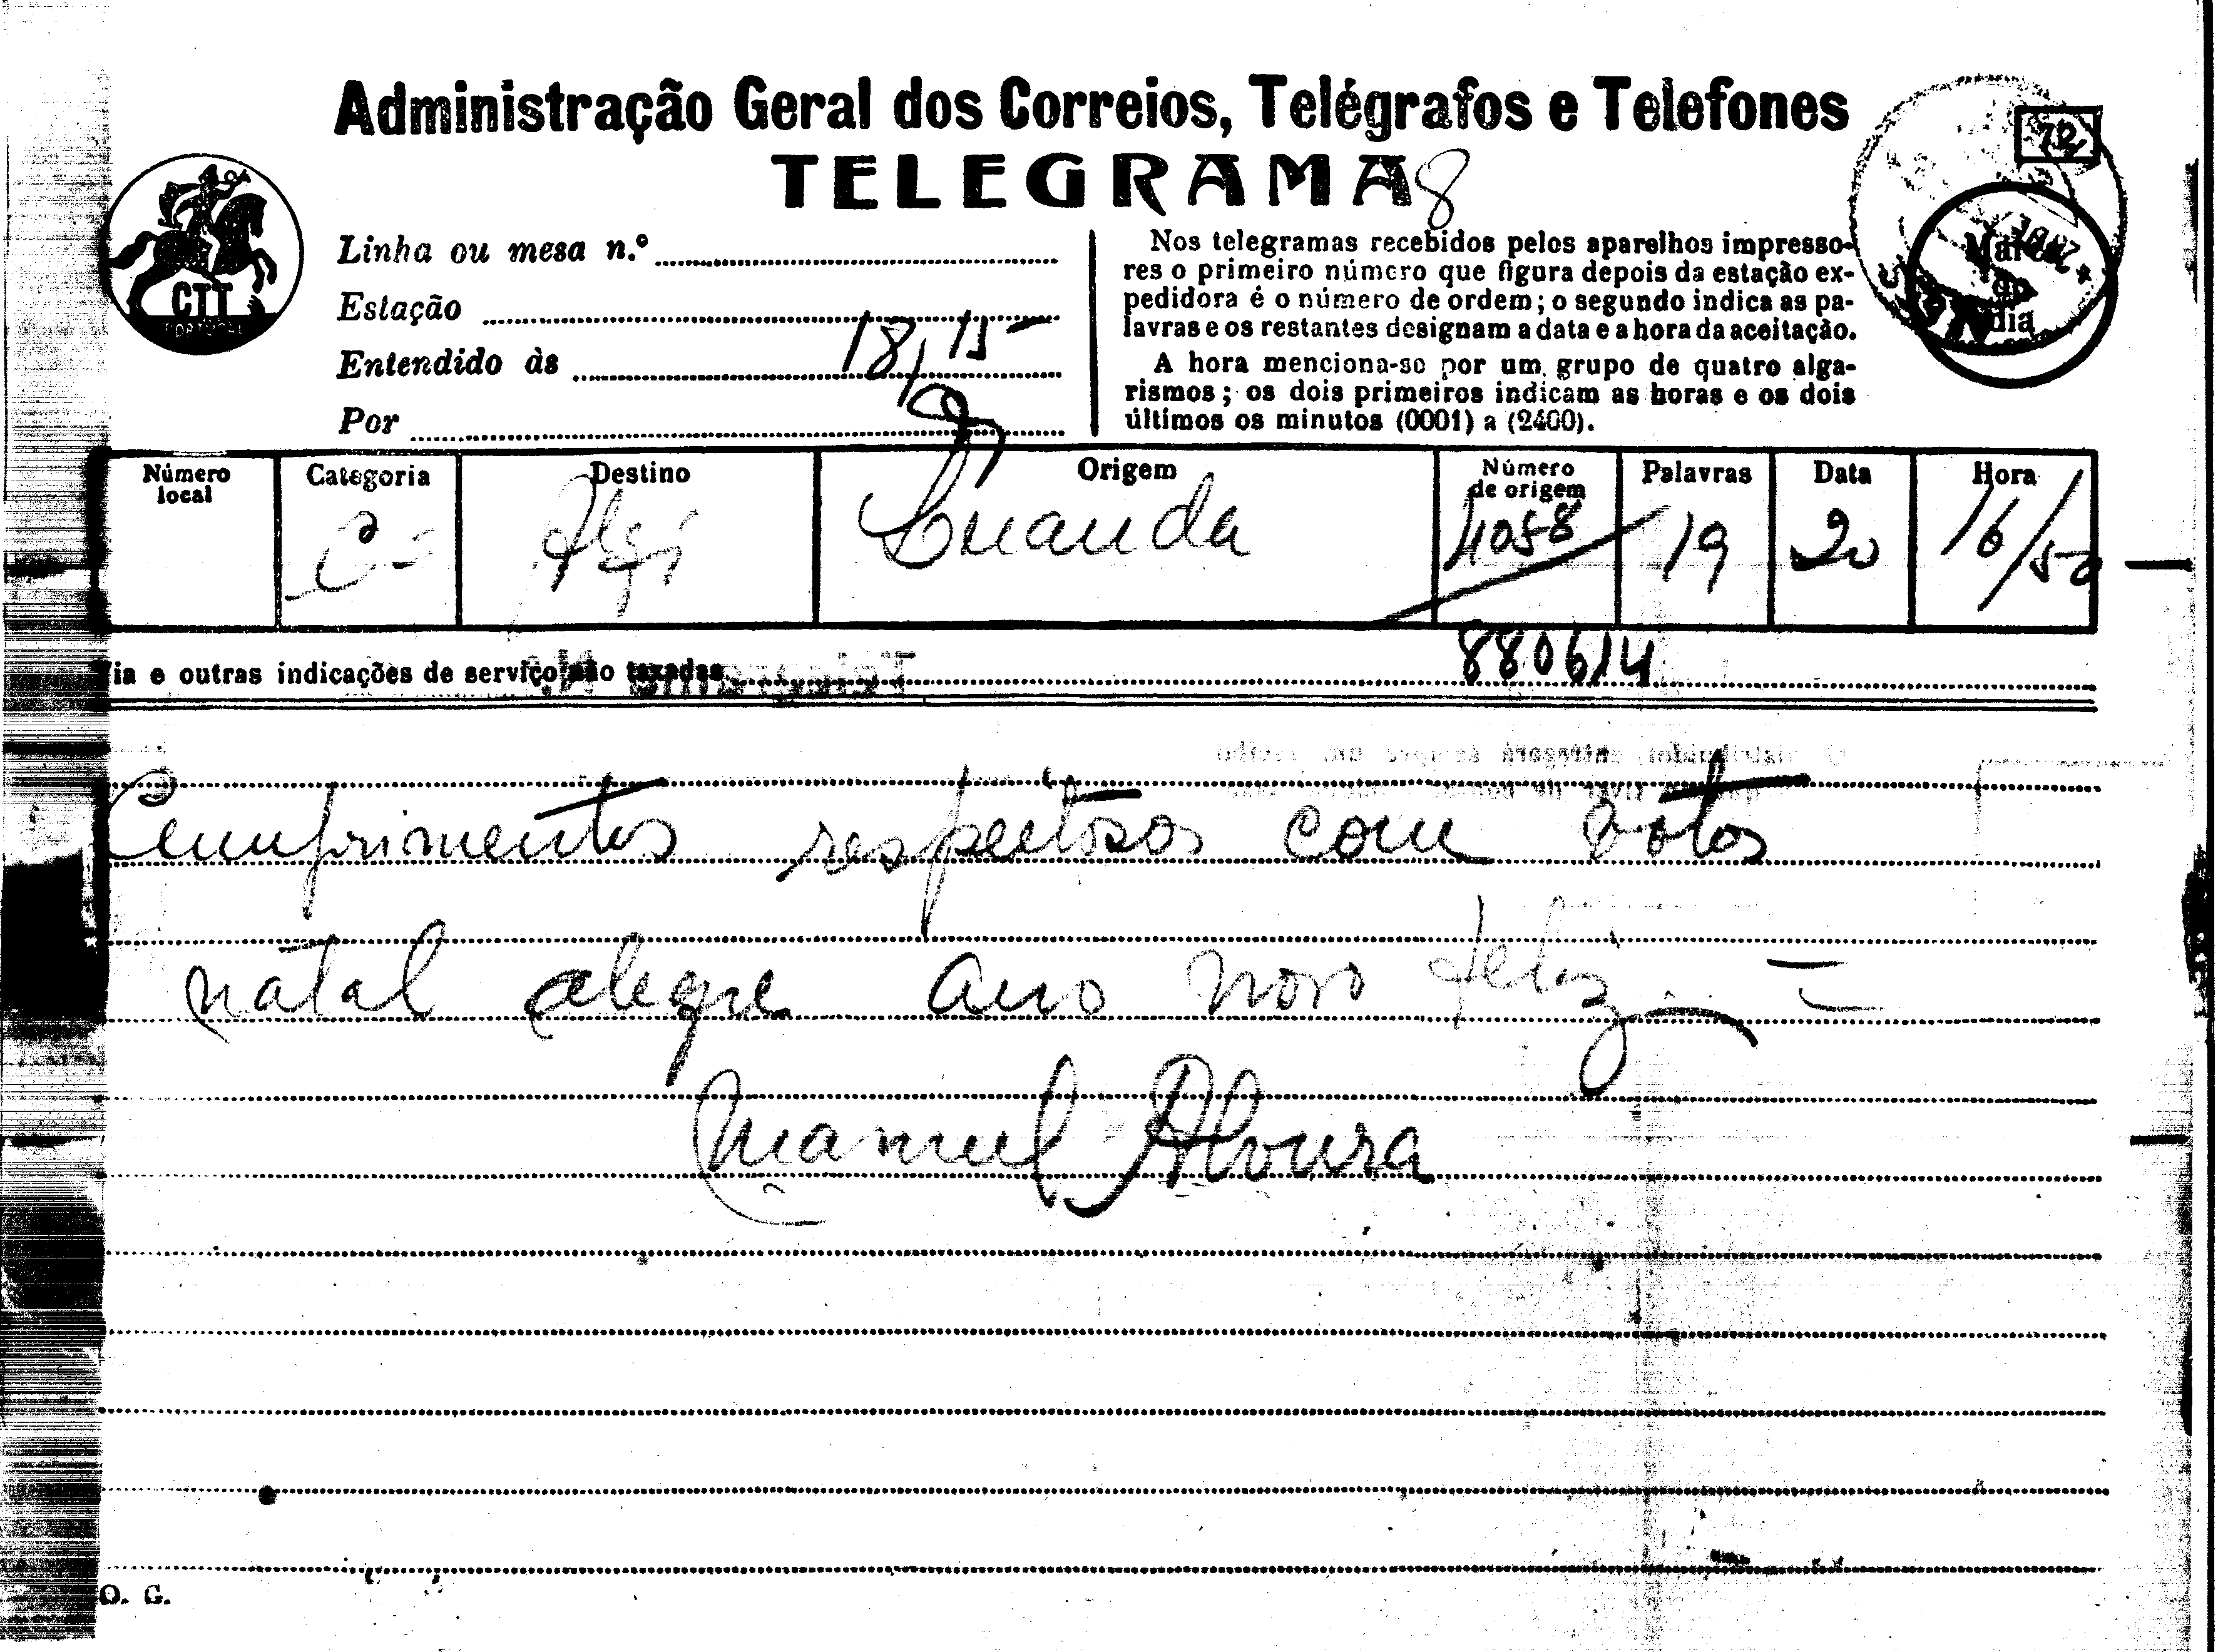 Administração Geral dos Correios, Telégrafos e Telefones
TELEGRAMA 8
CTT
PORTUGAL
Linha ou mesa n.º
Estação
Entendido às 18,15
Por
Nos telegramas recebidos pelos aparelhos impresso-
res o primeiro número que figura depois da estação ex-
pedidora é o número de ordem; o segundo indica as pa-
lavras e os restantes designam a data e a hora da aceitação.
A hora menciona-se por um grupo de quatro alga-
rismos; os dois primeiros indicam as horas e os dois
últimos os minutos (0001) a (2400).
Marca
do
dia
Número
local
Categoria
Destino
Origem
Número
de origem
Palavras
Data
Hora
Luanda
4058
19
20
16/50
Via e outras indicações de serviço não taxadas
880614
Cumprimentos respeitosos com votos
natal alegre ano novo feliz =
Manuel Moura
O. G.